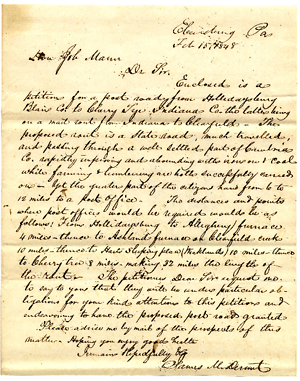 Ebensburg Pa
Feb 15, 1848
Hon Job Mann
Dr Sir,
Enclosed is a
petition for a post road from Hollidaysburg
Blair Co. to Cherry Tree Indiana Co. the latter being
on a mail rout from Indiana to Clearfield. This
proposed rout is a State road, much travelled,
and passing through a well settled part of Cambria
Co. rapidly improving and abounding with iron & Coal
while farming & lumbering are both successfully carried
on - Yet the greater part of the citizens have from 6 to
12 miles to a post office. The distances and points
where post offices would be required would be as
follows; from Hollidaysburg to Allegheny furnace
4 miles - thence to Ashland furnace on Clearfield creek
10 miles - thence to
10 miles thence
to Cherry tree 8 miles, making 32 miles the length of
the rout - The petitioners Dear Sir request me
to say to you that they will be under particular ob-
ligations for your kind attentions to this petition and
endeavoring to have the proposed post road granted
Please advise me by mail of the prospects of this
matter - Hoping you enjoy good health
I remain Respectfully &c
James